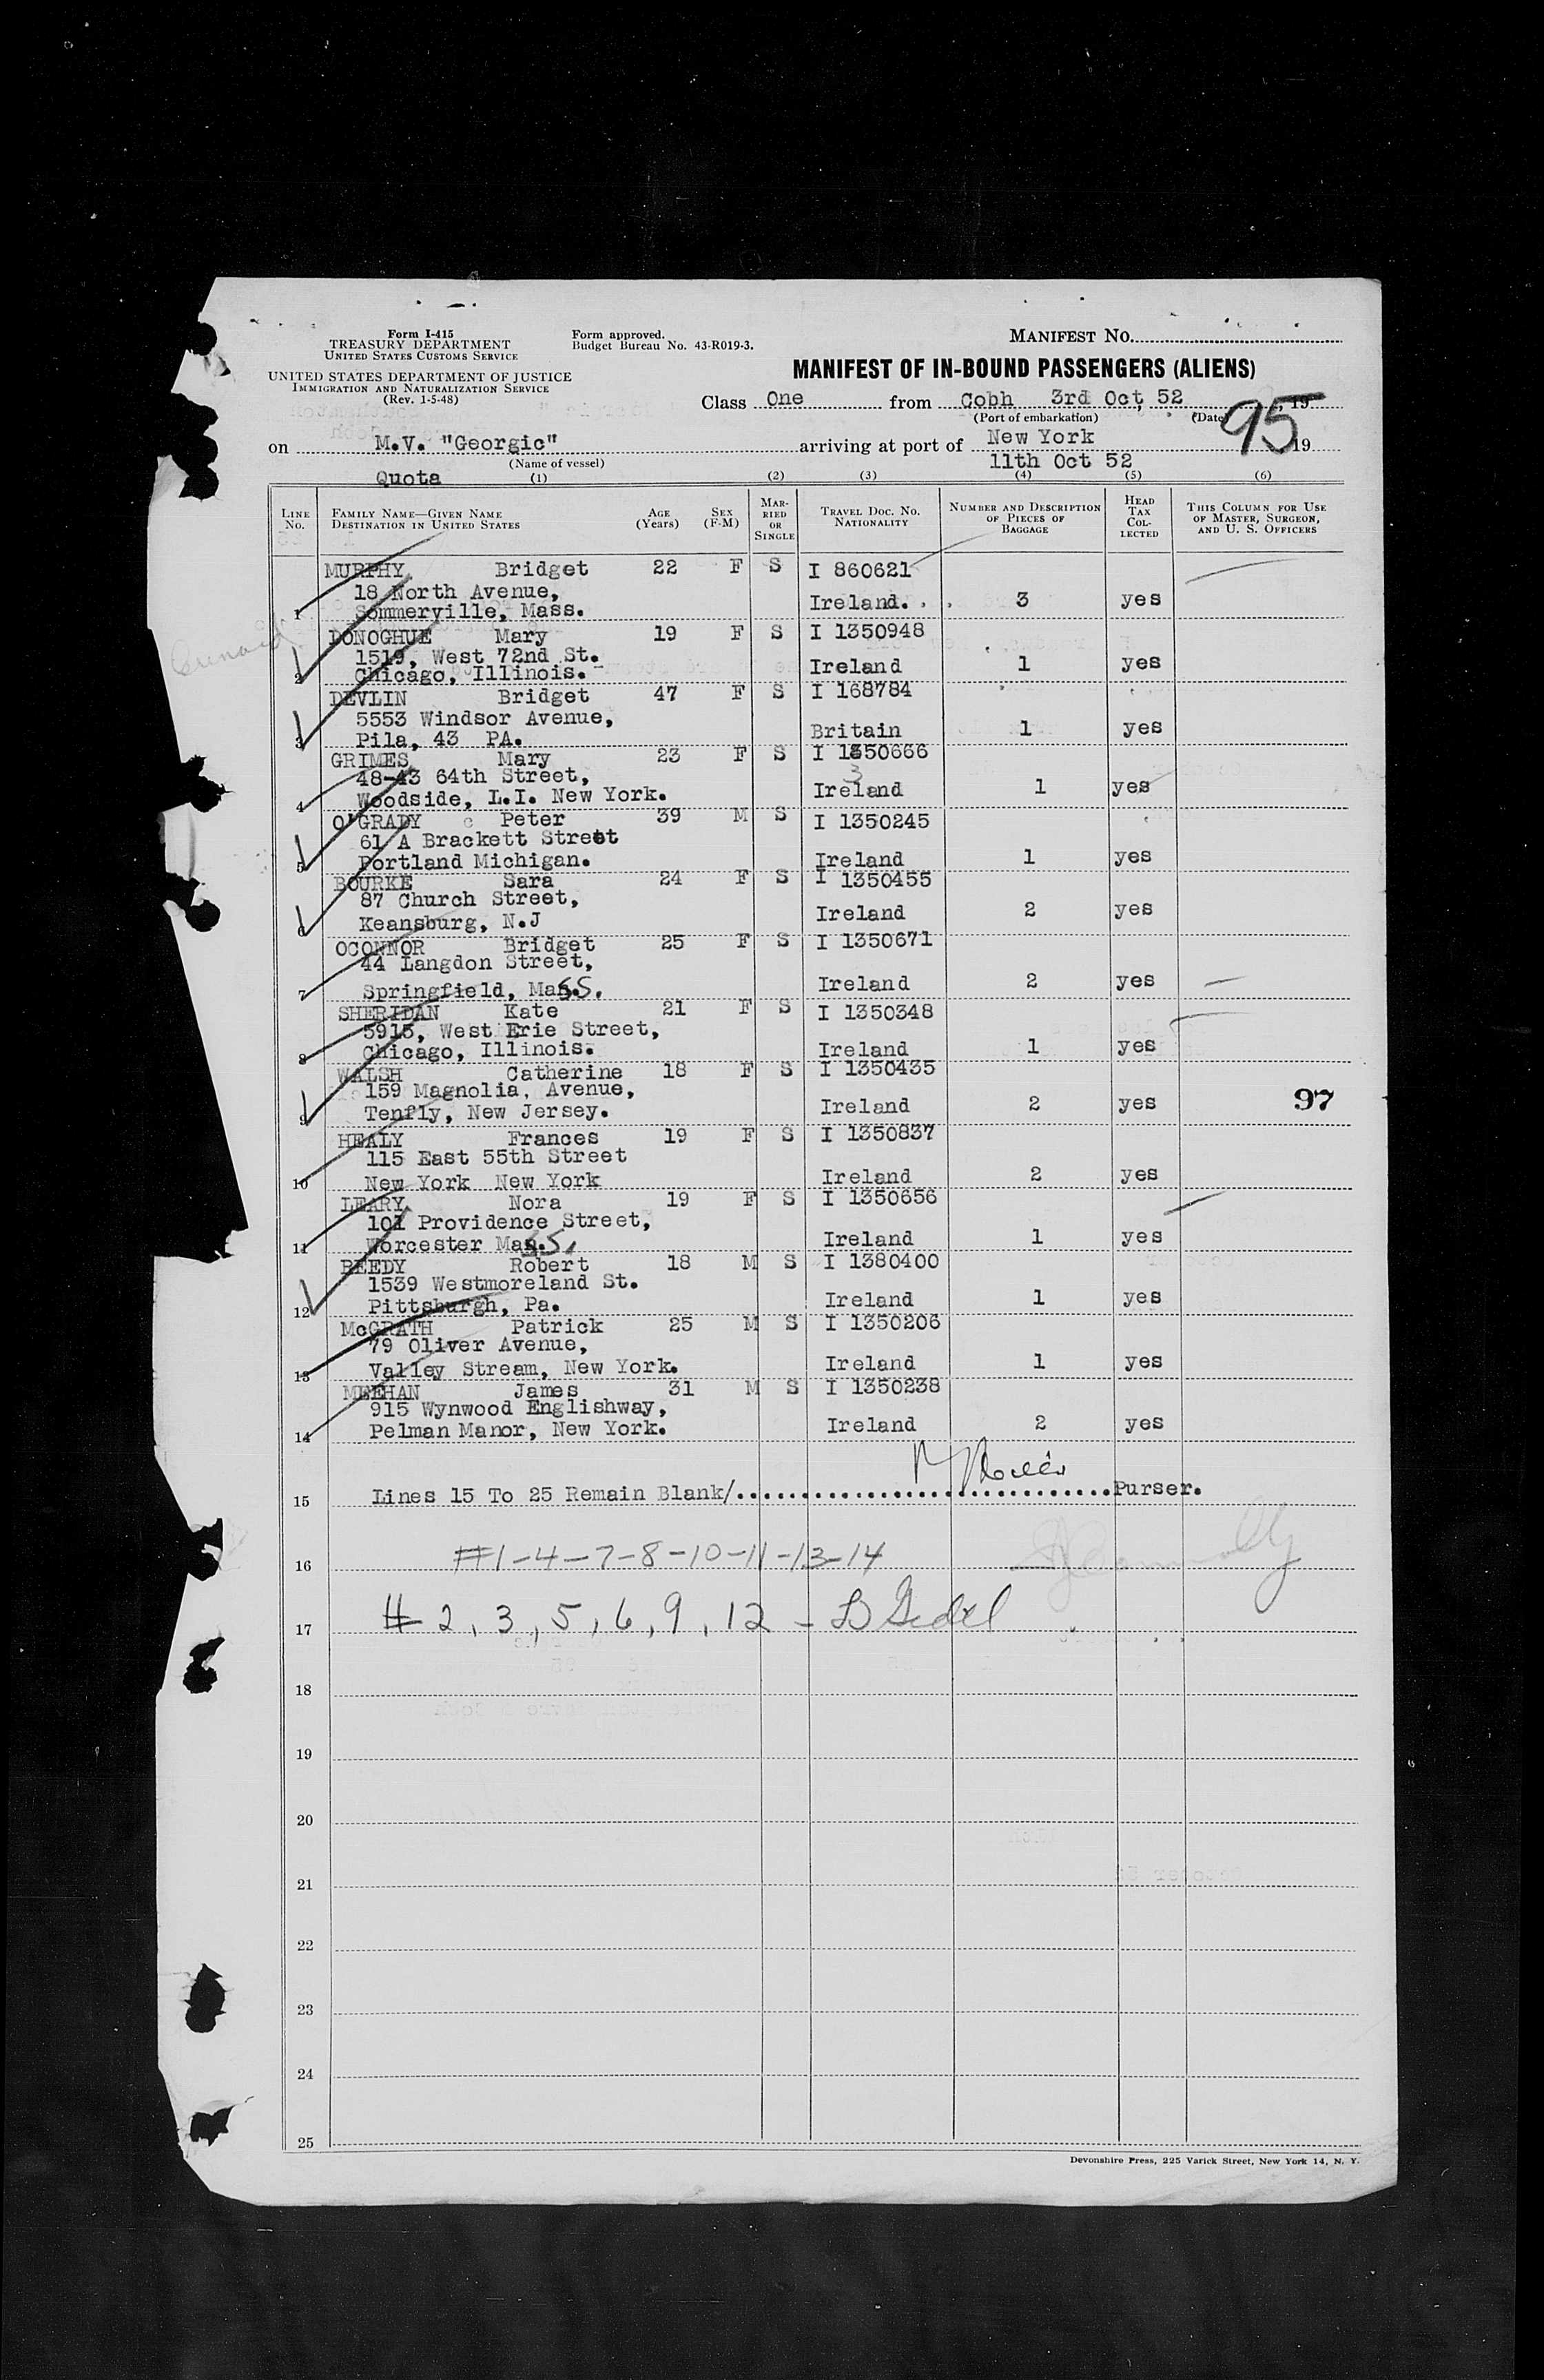 Form I-415
TREASURY DEPARTMENT
UNITED STATES CUSTOMS SERVICE
UNITED STATES DEPARTMENT OF JUSTICE
IMMIGRATION AND NATURALIZATION SERVICE
(Rev. 1-5-48)
Form approved.
Budget Bureau No. 43-R019-3.
MANIFEST NO.
MANIFEST OF IN-BOUND PASSENGERS (ALIENS)
Class One from Cobh 3rd Oct, 52, 19
(Port of embarkation) (Date)
95
on M.V. "Georgic" arriving at port of New York 19
(Name of vessel) 11th Oct 52
Quota (1) (2) (3) (4) (5) (6)
LINE No. FAMILY NAME—GIVEN NAME DESTINATION IN UNITED STATES AGE (Years) SEX (F-M) MARRIED OR SINGLE TRAVEL DOC. NO. NATIONALITY NUMBER AND DESCRIPTION OF PIECES OF BAGGAGE HEAD TAX COLLECTED THIS COLUMN FOR USE OF MASTER, SURGEON, AND U. S. OFFICERS
MURPHY Bridget 22 F S I 860621
18 North Avenue,
1 Sommerville, Mass. Ireland. 3 yes
DONOGHUE Mary 19 F S I 1350948
1519, West 72nd St.
2 Chicago, Illinois. Ireland 1 yes
DEVLIN Bridget 47 F S I 168784
5553 Windsor Avenue,
3 Pila, 43 PA. Britain 1 yes
GRIMES Mary 23 F S I 1350666
3
48-43 64th Street,
4 Woodside, L.I. New York. Ireland 1 yes
O'GRADY Peter 39 M S I 1350245
61 A Brackett Street
5 Portland Michigan. Ireland 1 yes
BOURKE Sara 24 F S I 1350455
87 Church Street,
6 Keansburg, N.J Ireland 2 yes
OCONNOR Bridget 25 F S I 1350671
44 Langdon Street,
7 Springfield, Mass. Ireland 2 yes
SHERIDAN Kate 21 F S I 1350348
5915, West Erie Street,
8 Chicago, Illinois. Ireland 1 yes
WALSH Catherine 18 F S I 1350435
159 Magnolia, Avenue,
9 Tenfly, New Jersey. Ireland 2 yes 97
HEALY Frances 19 F S I 1350837
115 East 55th Street
10 New York New York Ireland 2 yes
LEARY Nora 19 F S I 1350656
101 Providence Street,
11 Worcester Mass. Ireland 1 yes
REEDY Robert 18 M S I 1380400
1539 Westmoreland St.
12 Pittsburgh, Pa. Ireland 1 yes
McGRATH Patrick 25 M S I 1350206
79 Oliver Avenue,
13 Valley Stream, New York. Ireland 1 yes
MEEHAN James 31 M S I 1350238
915 Wynwood Englishway,
14 Pelman Manor, New York. Ireland 2 yes
15 Lines 15 To 25 Remain Blank/ Purser.
16 #1-4-7-8-10-11-13-14
17 # 2, 3, 5, 6, 9, 12 -
18
19
20
21
22
23
24
25
Devonshire Press, 225 Varick Street, New York 14, N. Y.